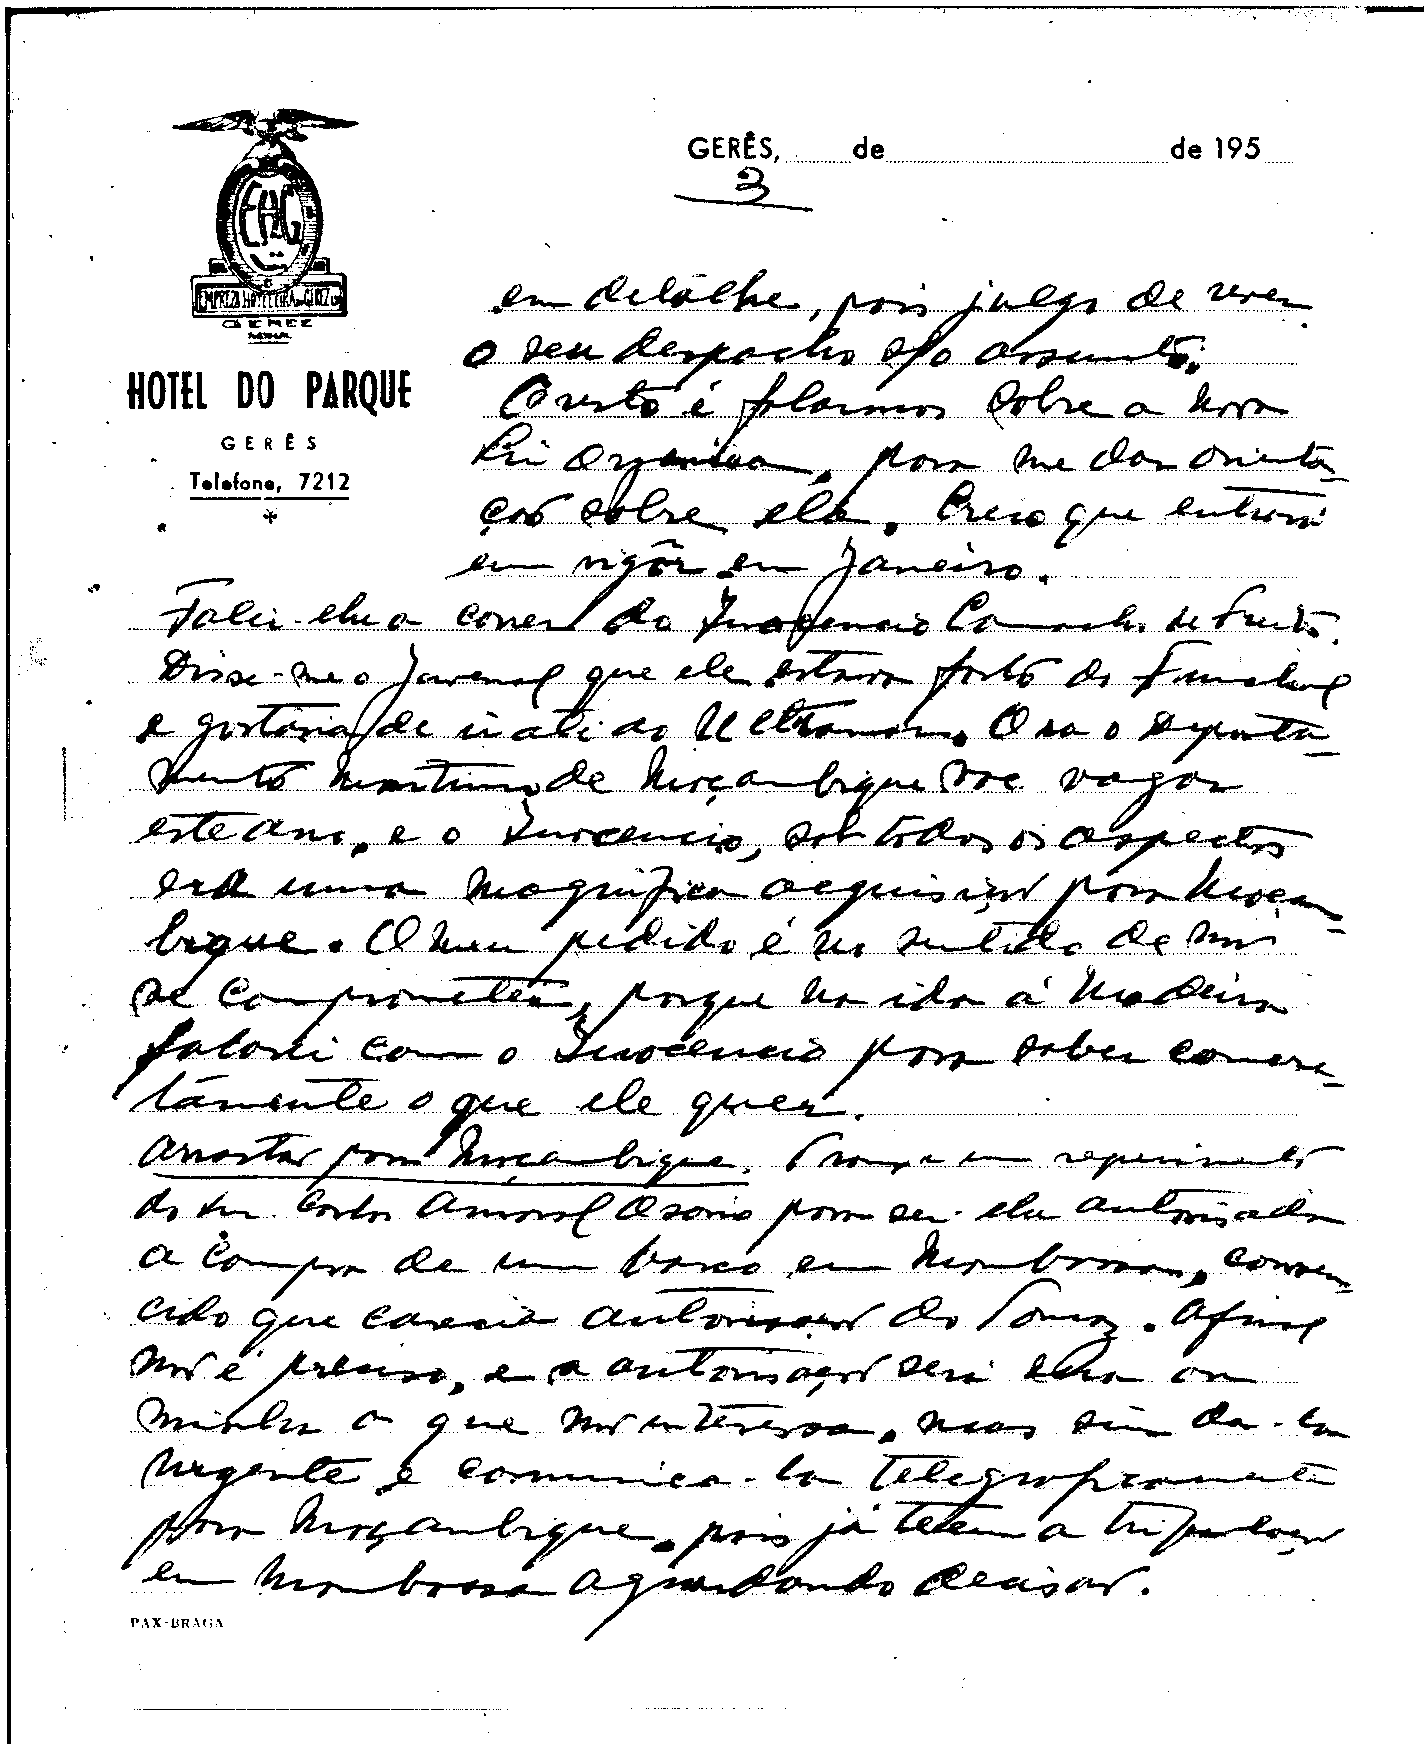 GERÊS, de de 195
3
EHG
EMPREZA HOTELEIRA DO GEREZ
GEREZ
HOTEL DO PARQUE
GERÊS
Telefone, 7212
em detalhe, pois julgo de ver em
o seu despacho s/o assunto.
O resto é falarmos sobre a nova
Lei Organica, para me dar orienta-
ção sobre ela. Creio que entrará
em vigôr em Janeiro.
Falei-lhe a correr do Inocencio Camacho de Freitas.
Disse-me o Juvenal que ele estava farto do Funchal
e gostaria de ir até ao Ultramar. Ora o Departa-
mento Maritimo de Moçambique vae vagar
este ano, e o Inocencio, sob todos os aspectos
era uma magnifica acquisição para Moçam-
bique. O meu pedido é no sentido de não
se comprometer, porque na ida á Madeira
falarei com o Inocencio para saber concre-
támente o que ele quer.
Arrastar para Moçambique. um requerimento
do Carlos Amaral Osorio para ser-lhe autorisada
a compra de um barco em Mombassa, conven-
cido que carecia autorisação do . Afinal
não é preciso, e a autorisação será sua ou
minha o que não interessa, mas sim da-la
urgente e comunica-la telegraficamente
para Moçambique, pois já teem a tripulação
em Mombassa aguardando decisão.
PAX-BRAGA